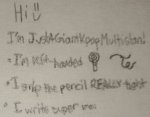 Hi!
I'm JustAGiantKpopMultistan!
• I'm left-handed
• I grip the pencil REALLY tight
• I write super